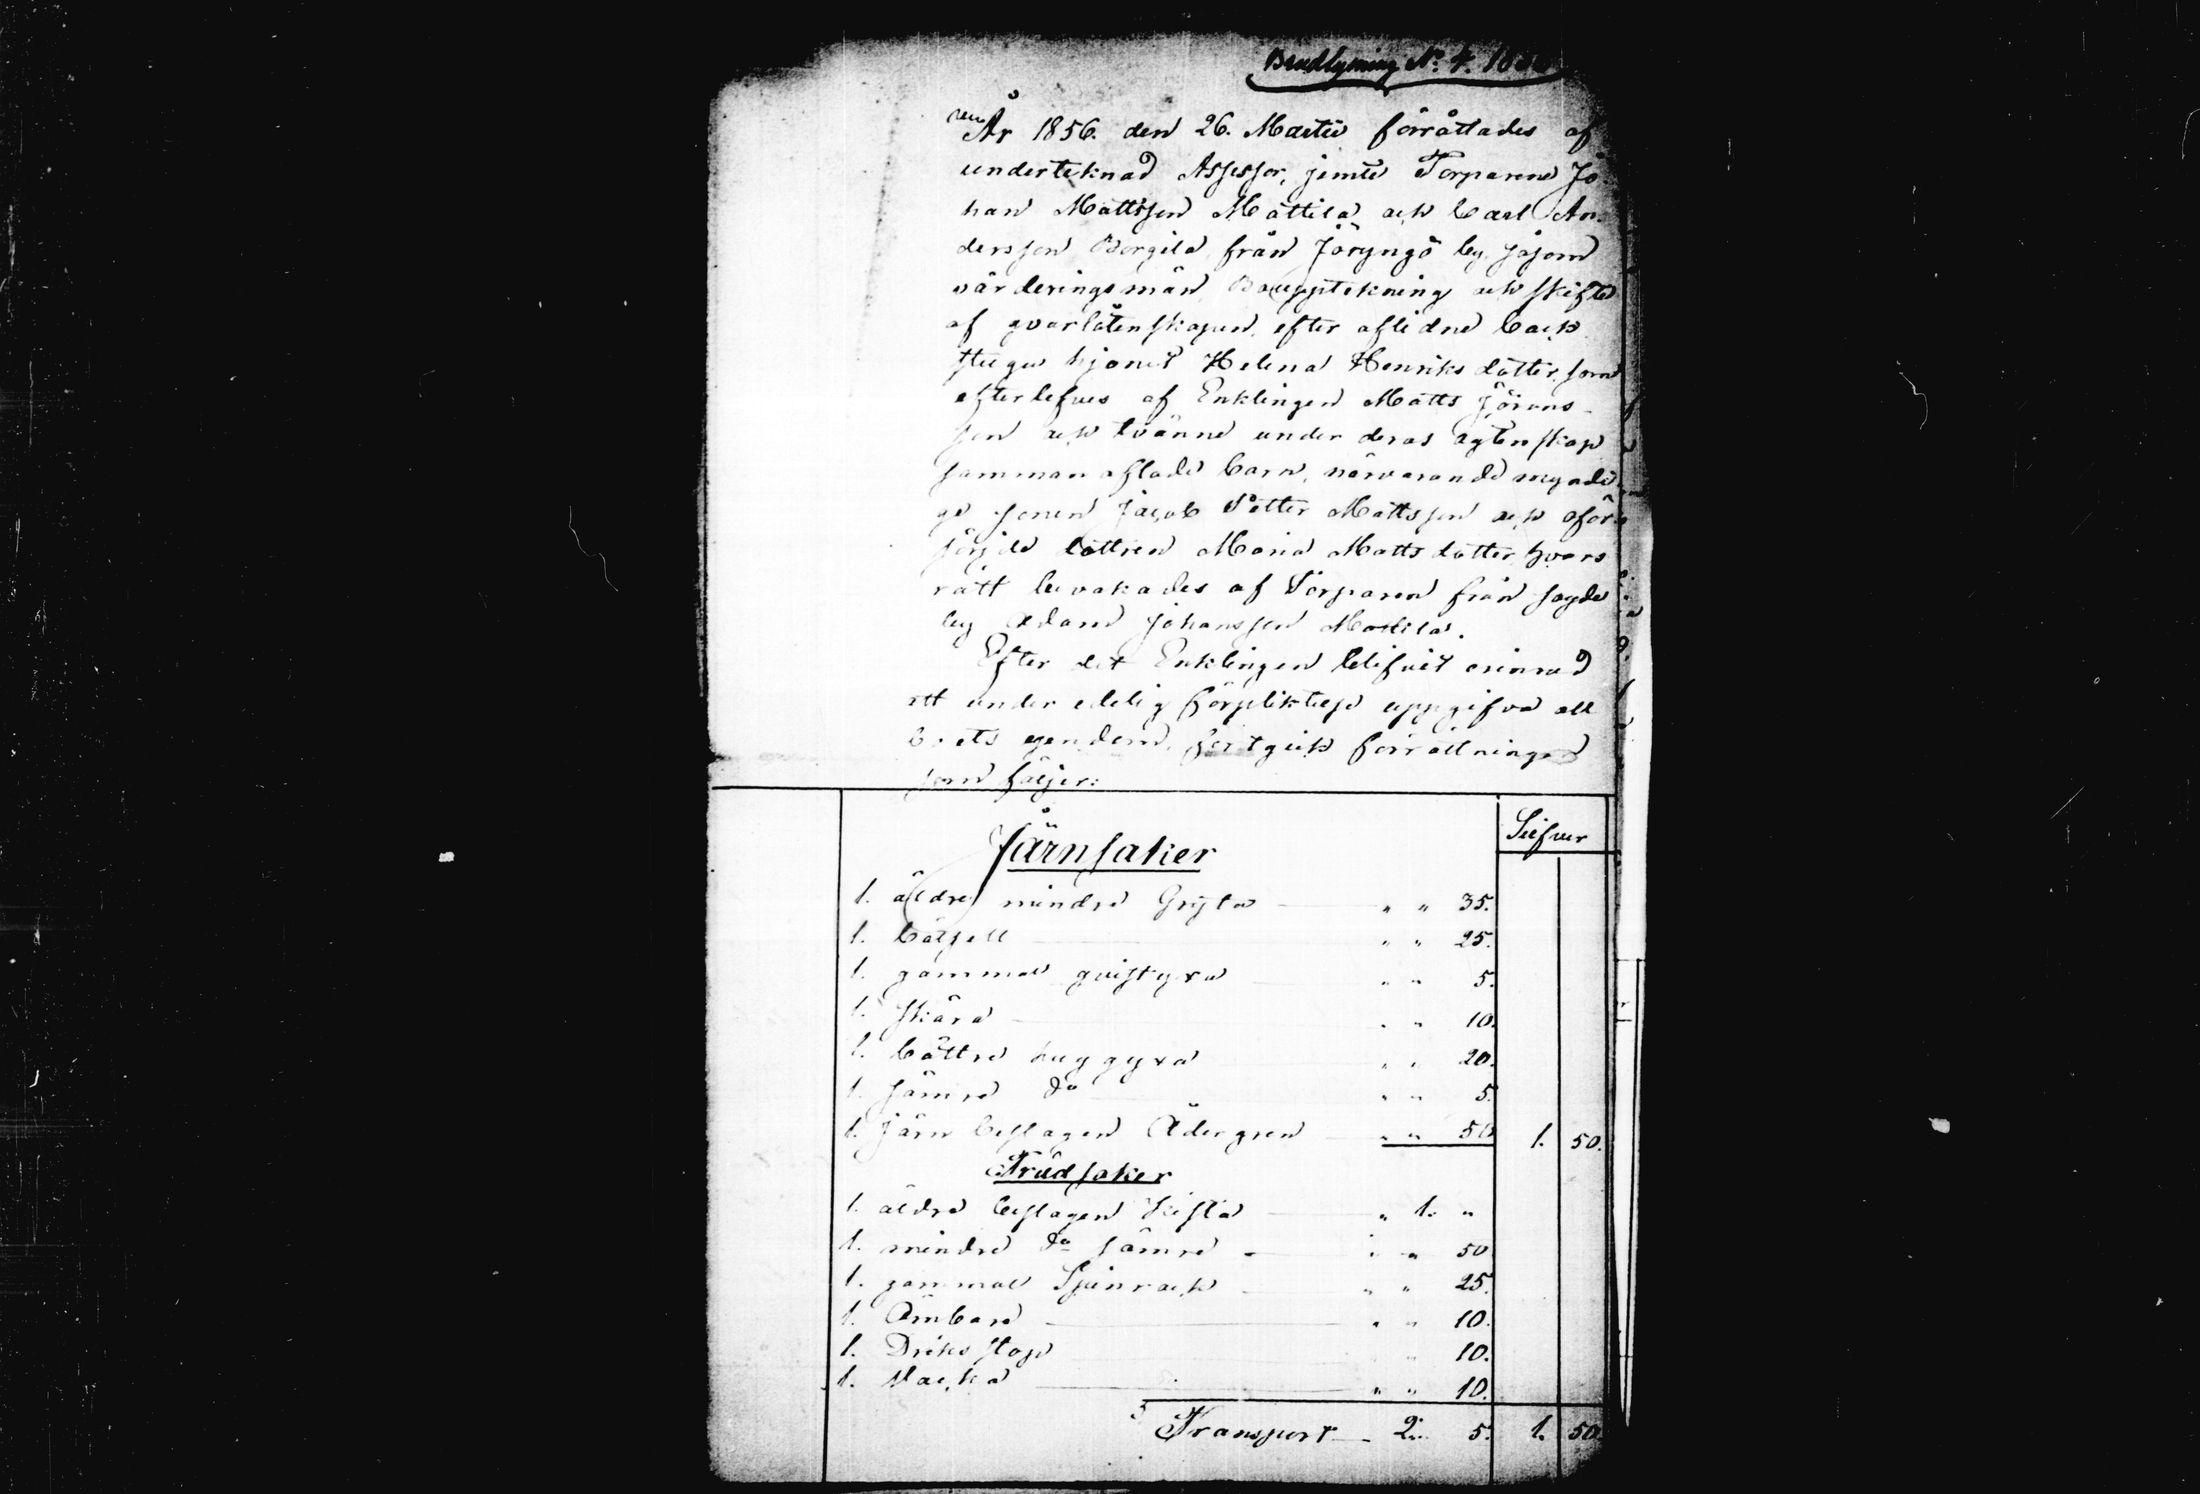 Brudlysning No 4. 18
År 1856. den 26. Martii förrättades af
underteknad Assessor, jemte Torparene Jo-
han Mattsson Mattila och Carl An-
dersson Bergila från Jöryngö by, såsom
värderingsmän, Bouppteckning och skifte
af qvarlåtenskapen efter aflidne back
stugu hjonet Helena Henriksdotter, som
efterlefves af Enklingen Matts Jörans-
son och tvänne under deras ägtenskap
samman aflade barn, närvarande myndi-
ge sonen Jacob Petter Mattsson och oför-
sörjde dottren Maria Mattsdotter, hvars
rätt bevakades af Torparen från sagde
by Adam Johansson Mattila.
Efter det Enklingen blifvit erinrad
att under edelig förpliktelse uppgifva all
boets egendom, fortgick förrättningen
som följer:
Silfver
Järnsaker
1. äldre mindre Gryta " " 35.
1. " " 25.
1. gammal qvistyxa " " 5.
1. skära " " 10.
1. bättre huggyxa " " 20.
1. sämre do " " 5.
1. järn beslagen " " 50 1. 50.
Trädsaker
1. äldre beslagen kista " 1. "
1. mindre do sämre " " 50
1. gammal Spinrock " " 25.
1. Ämbare " " 10.
1. Driks stop " 10.
1. " " 10.
Transport 2. 5. 1. 50